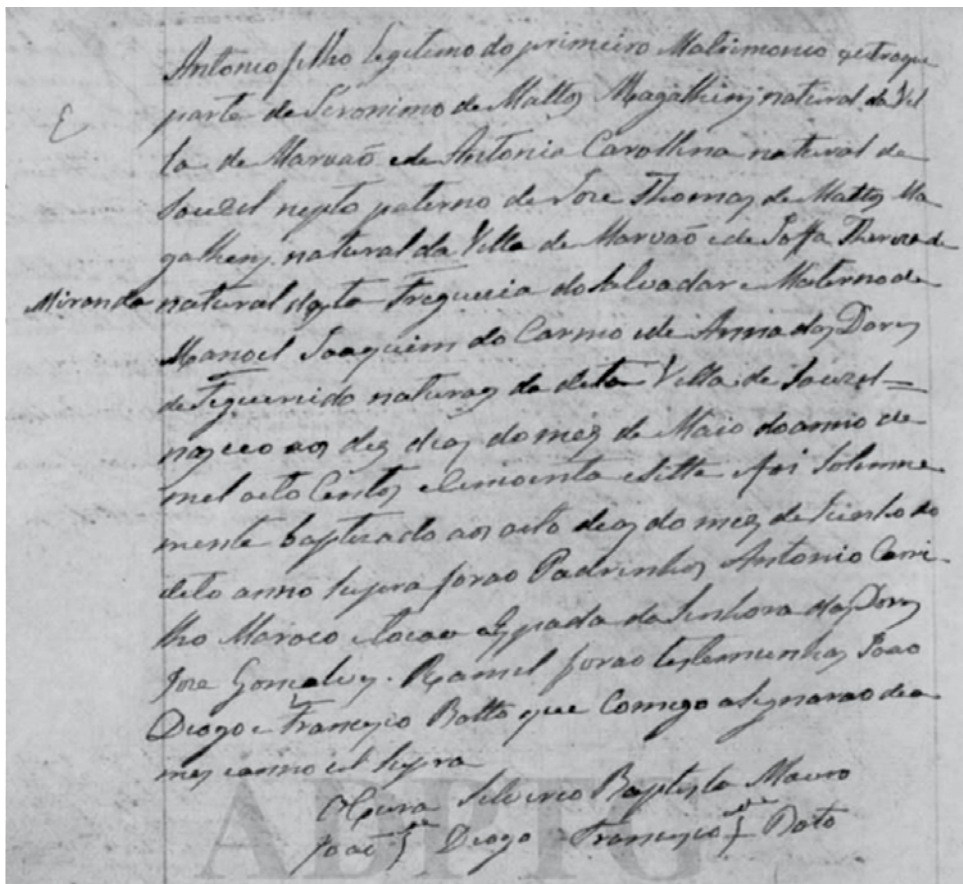 Antonio filho Legitimo do primeiro Matrimonio
parte de Jeronimo de Mattos Magalhens natural da Vil
la de Marvaõ e de Antonia Carollina natural de
Souzel nepto paterno de Jose Thomas de Mattos Ma
galhens natural da Villa de Marvaõ e de Thereza de
Miranda natural desta Freguezia do Salvador e Materno de
Manoel Joaquim do Carmo e de Anna das Dores
de Figueiredo naturas da dita Villa de Souzel =
nasceo aos dez dias do mes de Maio do anno de
mil oito Centos e sette e foi Solemne
mente baptizado aos oito dias do mes de Junho do
dito anno supra forao Padrinhos Antonio Carri
lho Maroco e tocou a da Senhora das Dores
Jose Gonçalves Ramil forao testemunhas Joao
Diogo e Francisco Batto que Comigo asignarao dia
mes e anno ut supra
O Cura Silverio Baptista Mauro
Joaõ Diogo Francisco Bato
ADPTG